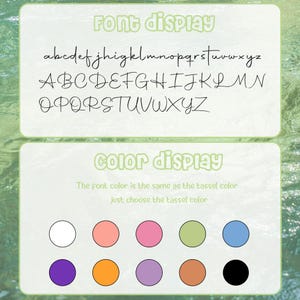 Font display
abcdefghijklmnopqrstuvwxyz
ABCDEFGHIJKLMN
OPQRSTUVWXYZ
Color display
The font color is the same as the tassel color
just choose the tassel color